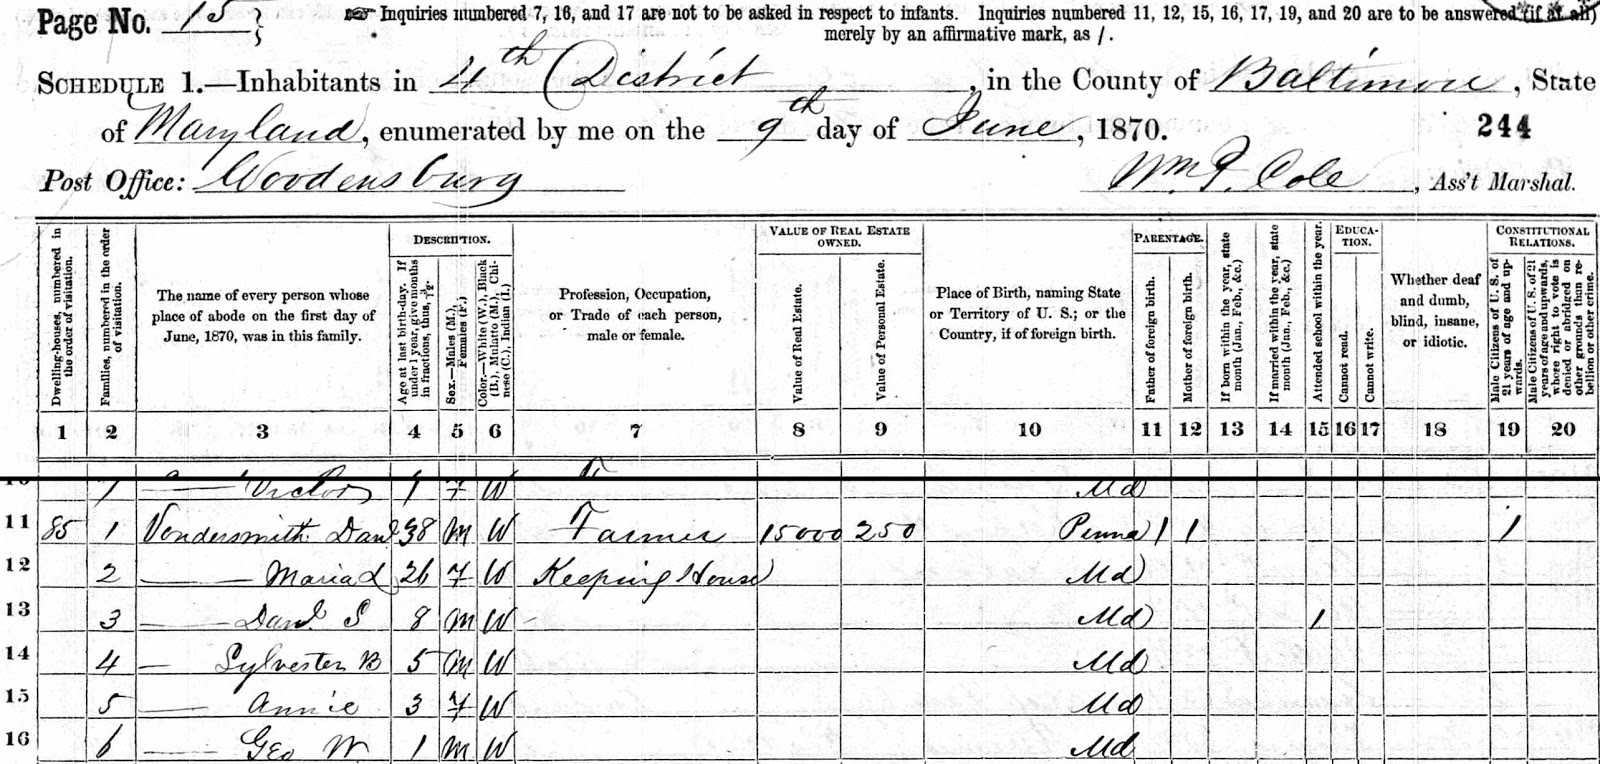 Page No. 15
☞ Inquiries numbered 7, 16, and 17 are not to be asked in respect to infants. Inquiries numbered 11, 12, 15, 16, 17, 19, and 20 are to be answered (if at all)
merely by an affirmative mark, as /.
SCHEDULE 1.—Inhabitants in 4th District, in the County of Baltimore, State
of Maryland, enumerated by me on the 9th day of June, 1870.
244
Post Office: Woodensburg
Wm F. Cole, Ass't Marshal.
Dwelling-houses, numbered in the order of visitation.
Families, numbered in the order of visitation.
The name of every person whose
place of abode on the first day of
June, 1870, was in this family.
DESCRIPTION.
Age at last birth-day. If under 1 year, give months in fractions, thus, 3/12.
Sex.—Males (M.), Females (F.)
Color.—White (W.), Black (B.), Mulatto (M.), Chinese (C.), Indian (I.)
Profession, Occupation,
or Trade of each person,
male or female.
VALUE OF REAL ESTATE
OWNED.
Value of Real Estate.
Value of Personal Estate.
Place of Birth, naming State
or Territory of U. S.; or the
Country, if of foreign birth.
PARENTAGE.
Father of foreign birth.
Mother of foreign birth.
If born within the year, state month (Jan., Feb., &c.)
If married within the year, state month (Jan., Feb., &c.)
Attended school within the year.
EDUCA-
TION.
Cannot read.
Cannot write.
Whether deaf
and dumb,
blind, insane,
or idiotic.
CONSTITUTIONAL
RELATIONS.
Male Citizens of U. S. of 21 years of age and upwards.
Male Citizens of U. S. of 21 years of age and upwards, where right to vote is denied or abridged on other grounds than rebellion or other crime.
1 2 3 4 5 6 7 8 9 10 11 12 13 14 15 16 17 18 19 20
7 Victor 1 F W Md
11 85 1 Vondersmith Danl 38 M W Farmer 15000 250 Penna 1 1 1
12 2 — Maria L 26 F W Keeping House Md
13 3 — Danl S 8 M W Md 1
14 4 — Sylvester B 5 M W Md
15 5 — Annie 3 F W Md
16 6 — Geo W 1 M W Md